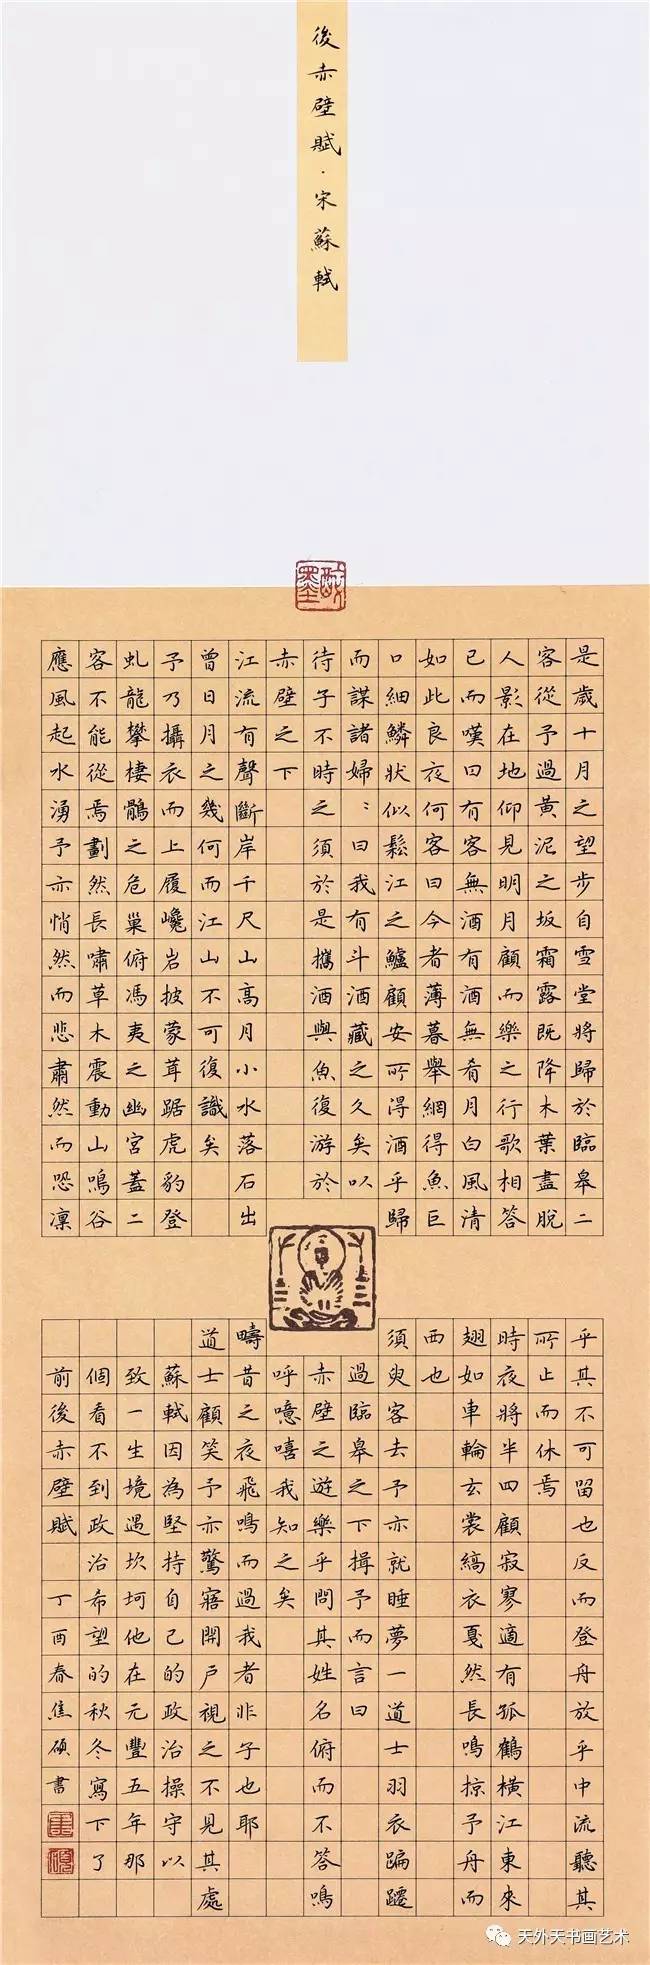 後赤壁賦·宋蘇軾
是歲十月之望步自雪堂將歸於臨皋二
客從予過黃泥之坂霜露既降木葉盡脫
人影在地仰見明月顧而樂之行歌相答
已而嘆曰有客無酒有酒無肴月白風清
如此良夜何客曰今者薄暮舉網得魚巨
口細鱗狀似鬆江之鱸顧安所得酒乎歸
而謀諸婦〻曰我有斗酒藏之久矣以
待子不時之須於是攜酒與魚復游於
赤壁之下
江流有聲斷岸千尺山高月小水落石出
曾日月之幾何而江山不可復識矣
予乃攝衣而上履巉岩披蒙茸踞虎豹登
虬龍攀棲鶻之危巢俯馮夷之幽宮蓋二
客不能從焉劃然長嘯草木震動山鳴谷
應風起水湧予亦悄然而悲肅然而恐凜
乎其不可留也反而登舟放乎中流聽其
所止而休焉
時夜將半四顧寂寥適有孤鶴橫江東來
翅如車輪玄裳縞衣戛然長鳴掠予舟而
西也
須臾客去予亦就睡夢一道士羽衣蹁躚
過臨皋之下揖予而言曰
赤壁之遊樂乎問其姓名俯而不答鳴
呼噫嘻我知之矣
疇昔之夜飛鳴而過我者非子也耶
道士顧笑予亦驚寤開戶視之不見其處
蘇軾因為堅持自己的政治操守以
致一生境遇坎坷他在元豐五年那
個看不到政治希望的秋冬寫下了
前後赤壁賦 丁酉春焦碩書
天外天书画艺术